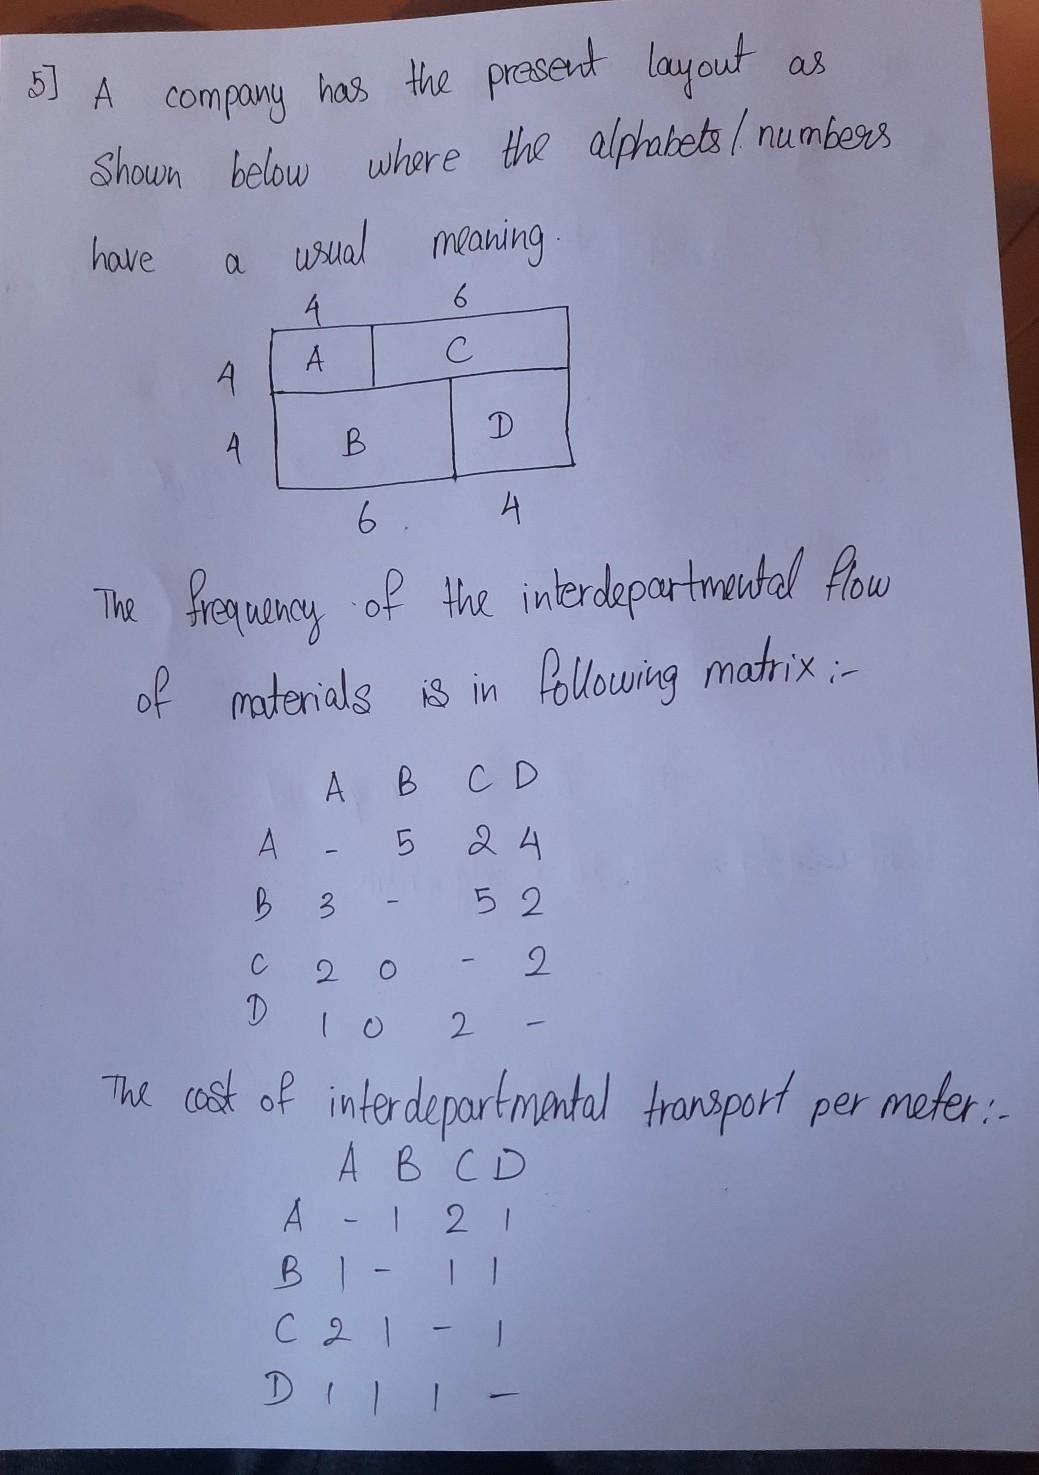 5] A company has the present layout as
Shown below where the alphabets/numbers
have a usual meaning.
4 6
4 A C
4 B D
6 4
The frequency of the interdepartmental flow
of materials is in following matrix :-
A B C D
A - 5 2 4
B 3 - 5 2
C 2 0 - 2
D 1 0 2 -
The cost of interdepartmental transport per meter :-
A B C D
A - 1 2 1
B 1 - 1 1
C 2 1 - 1
D 1 1 1 -